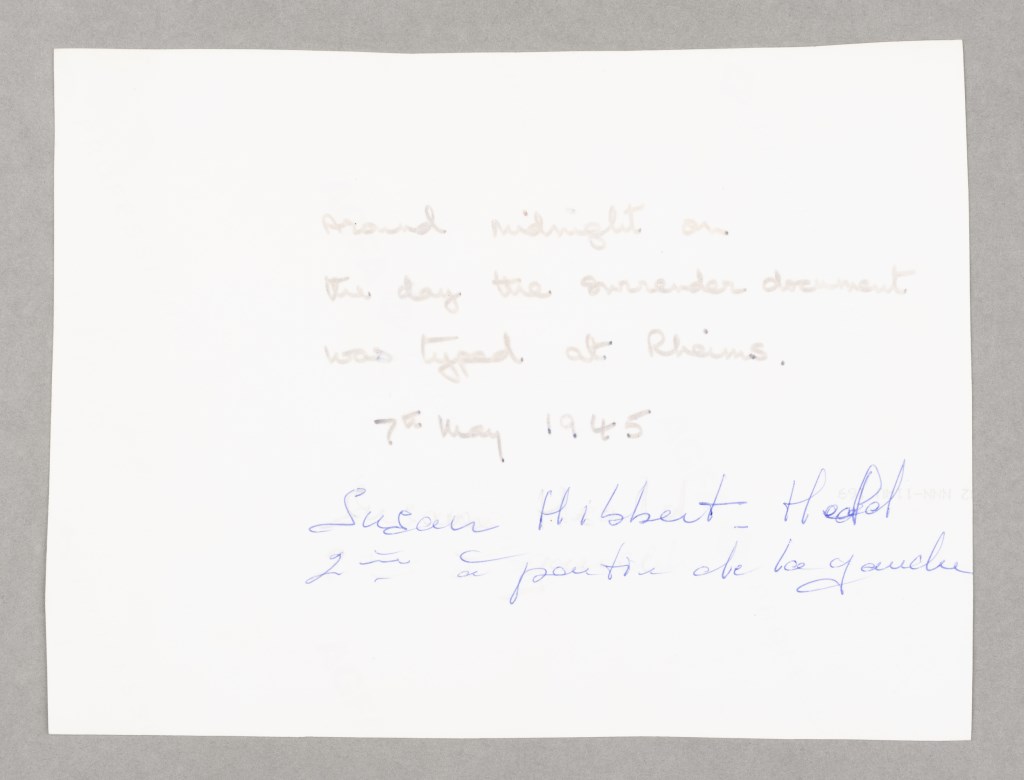 around midnight on
the day the surrender document
was typed at Rheims.
7th May 1945
Susan Hibbert - Heald
2ème à partir de la gauche